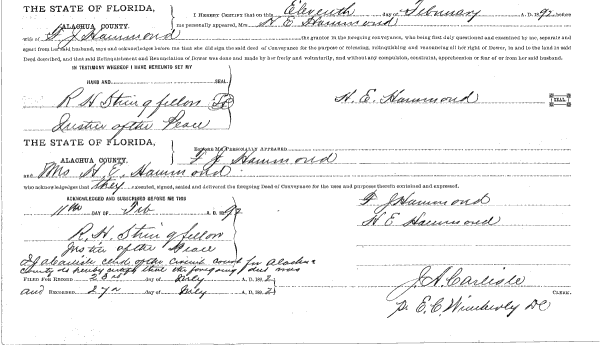 THE STATE OF FLORIDA,
ALACHUA COUNTY.
I HEREBY CERTIFY that on this Eleventh day of February A. D. 1892 before
me personally appeared, Mrs H. E. Hammond
wife of F J Hammond the grantor in the foregoing conveyance, who being first duly questioned and examined by me, separate and
apart from her said husband, says and acknowledges before me that she did sign the said deed of Conveyance for the purpose of releasing, relinquishing and renouncing all her right of Dower, in and to the land in said
Deed described, and that said Relinquishment and Renunciation of Dower was done and made by her freely and voluntarily, and without any compulsion, constraint, apprehension or fear of or from her said husband.
IN TESTIMONY WHEREOF I HAVE HEREUNTO SET MY
HAND AND SEAL
R H Stringfellow
H. E. Hammond SEAL
Justice of the Peace
THE STATE OF FLORIDA,
ALACHUA COUNTY.
BEFORE ME PERSONALLY APPEARED F J Hammond
and Mrs H. E. Hammond
who acknowledges that they executed, signed, sealed and delivered the foregoing Deed of Conveyance for the uses and purposes therein contained and expressed.
ACKNOWLEDGED AND SUBSCRIBED BEFORE ME THIS
11th DAY OF Feb A. D. 1892
F J Hammond
H E Hammond
R. H. Stringfellow
Justice of the Peace
clerk of the Circuit Court for Alachua
County do hereby certify that the foregoing deed was
FILED FOR RECORD day of A. D. 1892
and RECORDED 27 day of A. D. 1892
J. A. Carlisle CLERK.
pr E. C. Wimberly DC